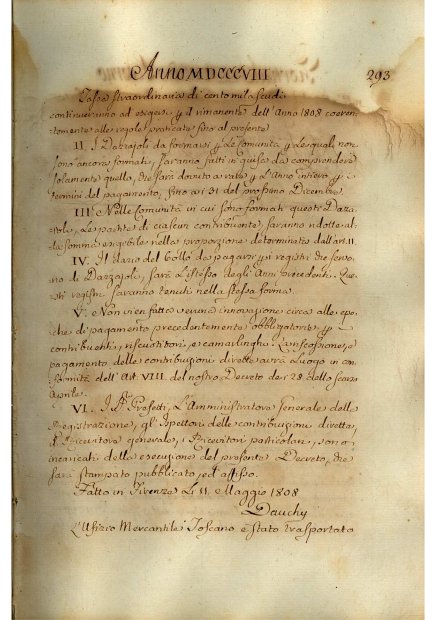 Anno MDCCCVIII
293
Tassa straordinaria di cento mila scudi
continueranno ad esigersi p il rimanente dell'Anno 1808 coeren-
temente alle regole praticate fino al presente
II. I Dazzajoli da formarsi p Le Comunità p Le quali non
sono ancora formati, saranno fatti in guisa da comprendere
solamente quello, che sarà dovuto a rate p L'Anno intiero p i
termini del pagamento, fino ai 31 del prossimo Dicembre.
III. Nelle Comunità in cui sono formati questi Dazza-
joli, Le partite di ciascun contribuente, saranno ridotte al-
la somma esigibile nella proporzione determinata dall'art. II.
IV. Il dazio del bollo da pagarsi p i registri che servo-
no di Dazzajoli, sarà L'istesso degli Anni precedenti. Que-
sti registri saranno tenuti nella stessa forma.
V. e Non vien fatto veruna innovazione circa alle epo-
che di pagamento precedentemente obbligatorie p i
contribuenti, riscuotitori, e camarlinghi. La riscossione, e
pagamento delle contribuzioni dirette avrà Luogo in con-
formità dell'Art. VIII. del nostro Decreto de 29 dello scorso
Aprile.
VI. I Prefetti, L'Amministratore Generale della
Registrazione, gl'Ispettori delle contribuzioni dirette,
il Ricevitore generale, i Ricevitori particolari, sono in-
caricati della esecuzione del presente Decreto, che
sarà stampato pubblicato, ed affisso.
Fatto in Firenze Li 11 Maggio 1808
Dauchy
L'Ufizio Mercantile Toscano è stato trasportato